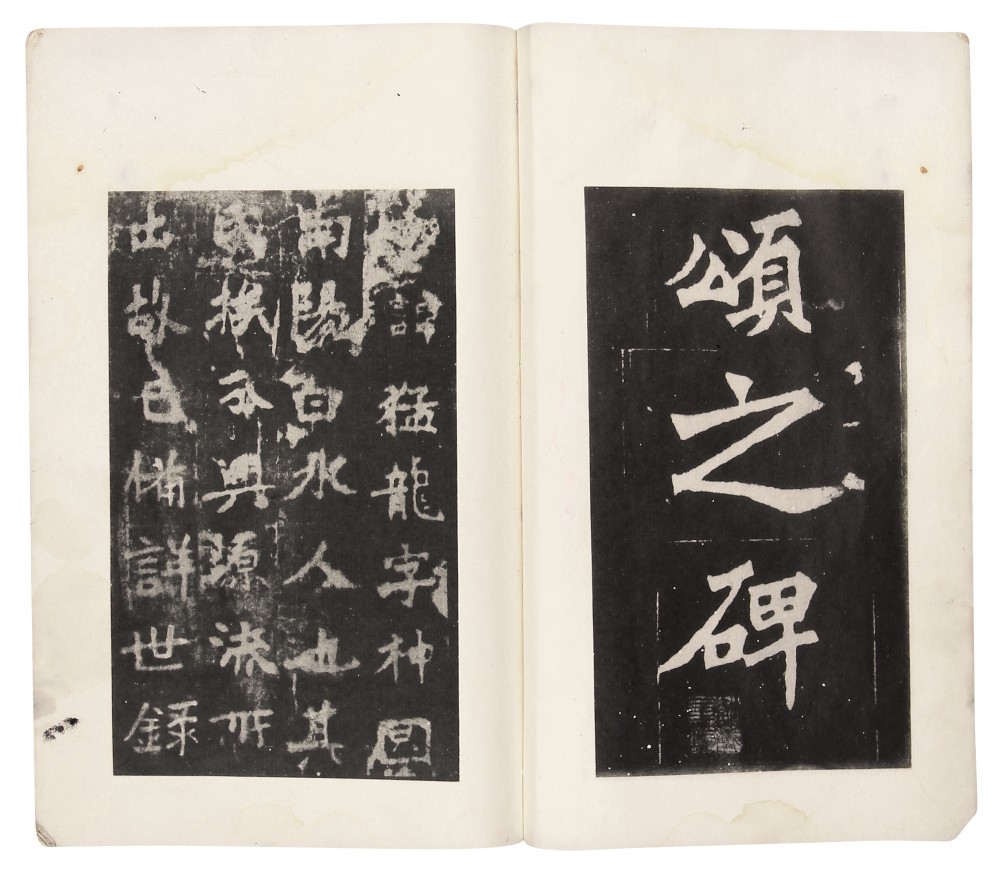 頌之碑
諱猛龍字神
南陽白水人也其
氏族分興源流所
出故已備詳世錄